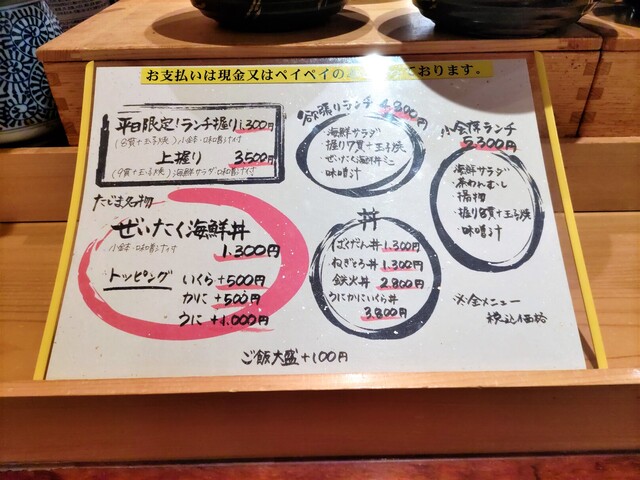 お支払いは現金又はペイペイの ております。
平日限定!ランチ握り1,300円
(8貫+玉子焼)小鉢・味噌汁付
上握り 3,500円
(9貫+玉子焼)海鮮サラダ・味噌汁付
たじま名物
ぜいたく海鮮丼
小鉢・味噌汁付
1,300円
トッピング いくら+500円
かに+500円
うに+1,000円
欲張りランチ 4,800円
海鮮サラダ
・握り7貫+玉子焼
・ぜいたく海鮮丼ミニ
・味噌汁
丼
ばくだん丼 1,300円
ねぎとろ丼 1,300円
鉄火丼 2,800円
うにかにいくら丼
3,800円
会席ランチ
5,300円
海鮮サラダ
・茶わんむし
・揚物
・握り8貫+玉子焼
・味噌汁
※全メニュー
税込価格
ご飯大盛+100円